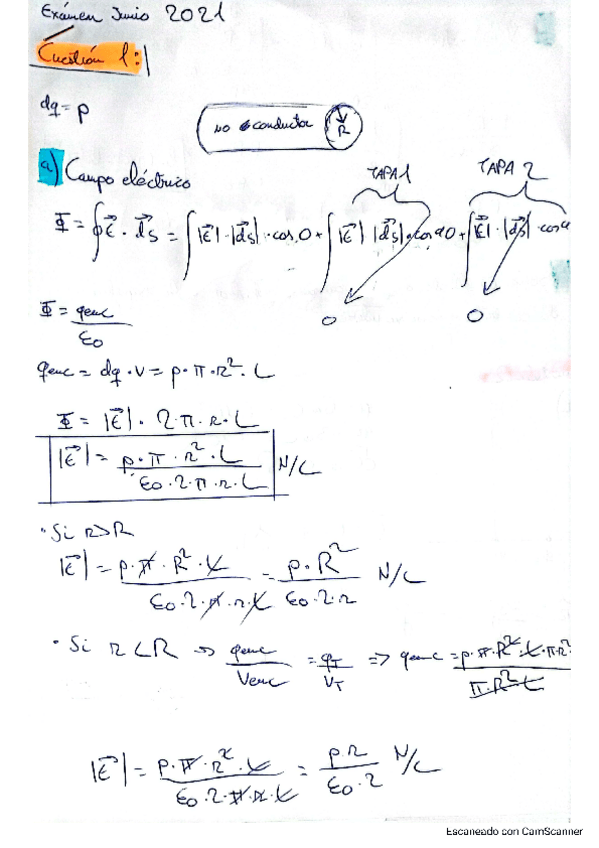 Exámen Junio 2021
Cuestión 1:
dq = ρ
no conductor R
a) Campo eléctrico
TAPA 1 TAPA 2
Φ = ∮E⃗ · d⃗s = ∫|E⃗|·|d⃗s|·cos 0 + ∫|E⃗| |d⃗s|·cos 90 + ∫|E⃗|·|d⃗s|·cos
0 0
Φ = qenc / ε0
qenc = dq · V = ρ·π·r²·L
Φ = |E⃗| · 2·π·r·L
|E⃗| = ρ·π·r²·L / ε0·2·π·r·L N/C
· Si r>R
|E⃗| = ρ·π·R²·L / ε0·2·π·r·L = ρ·R² / ε0·2·r N/C
· Si r<R ⇒ qenc / Venc = qT / VT ⇒ qenc = ρ·π·R²·L·π·r² / π·R²·L
|E⃗| = ρ·π·r²·L / ε0·2·π·r·L = ρ·r / ε0·2 N/C
Escaneado con CamScanner